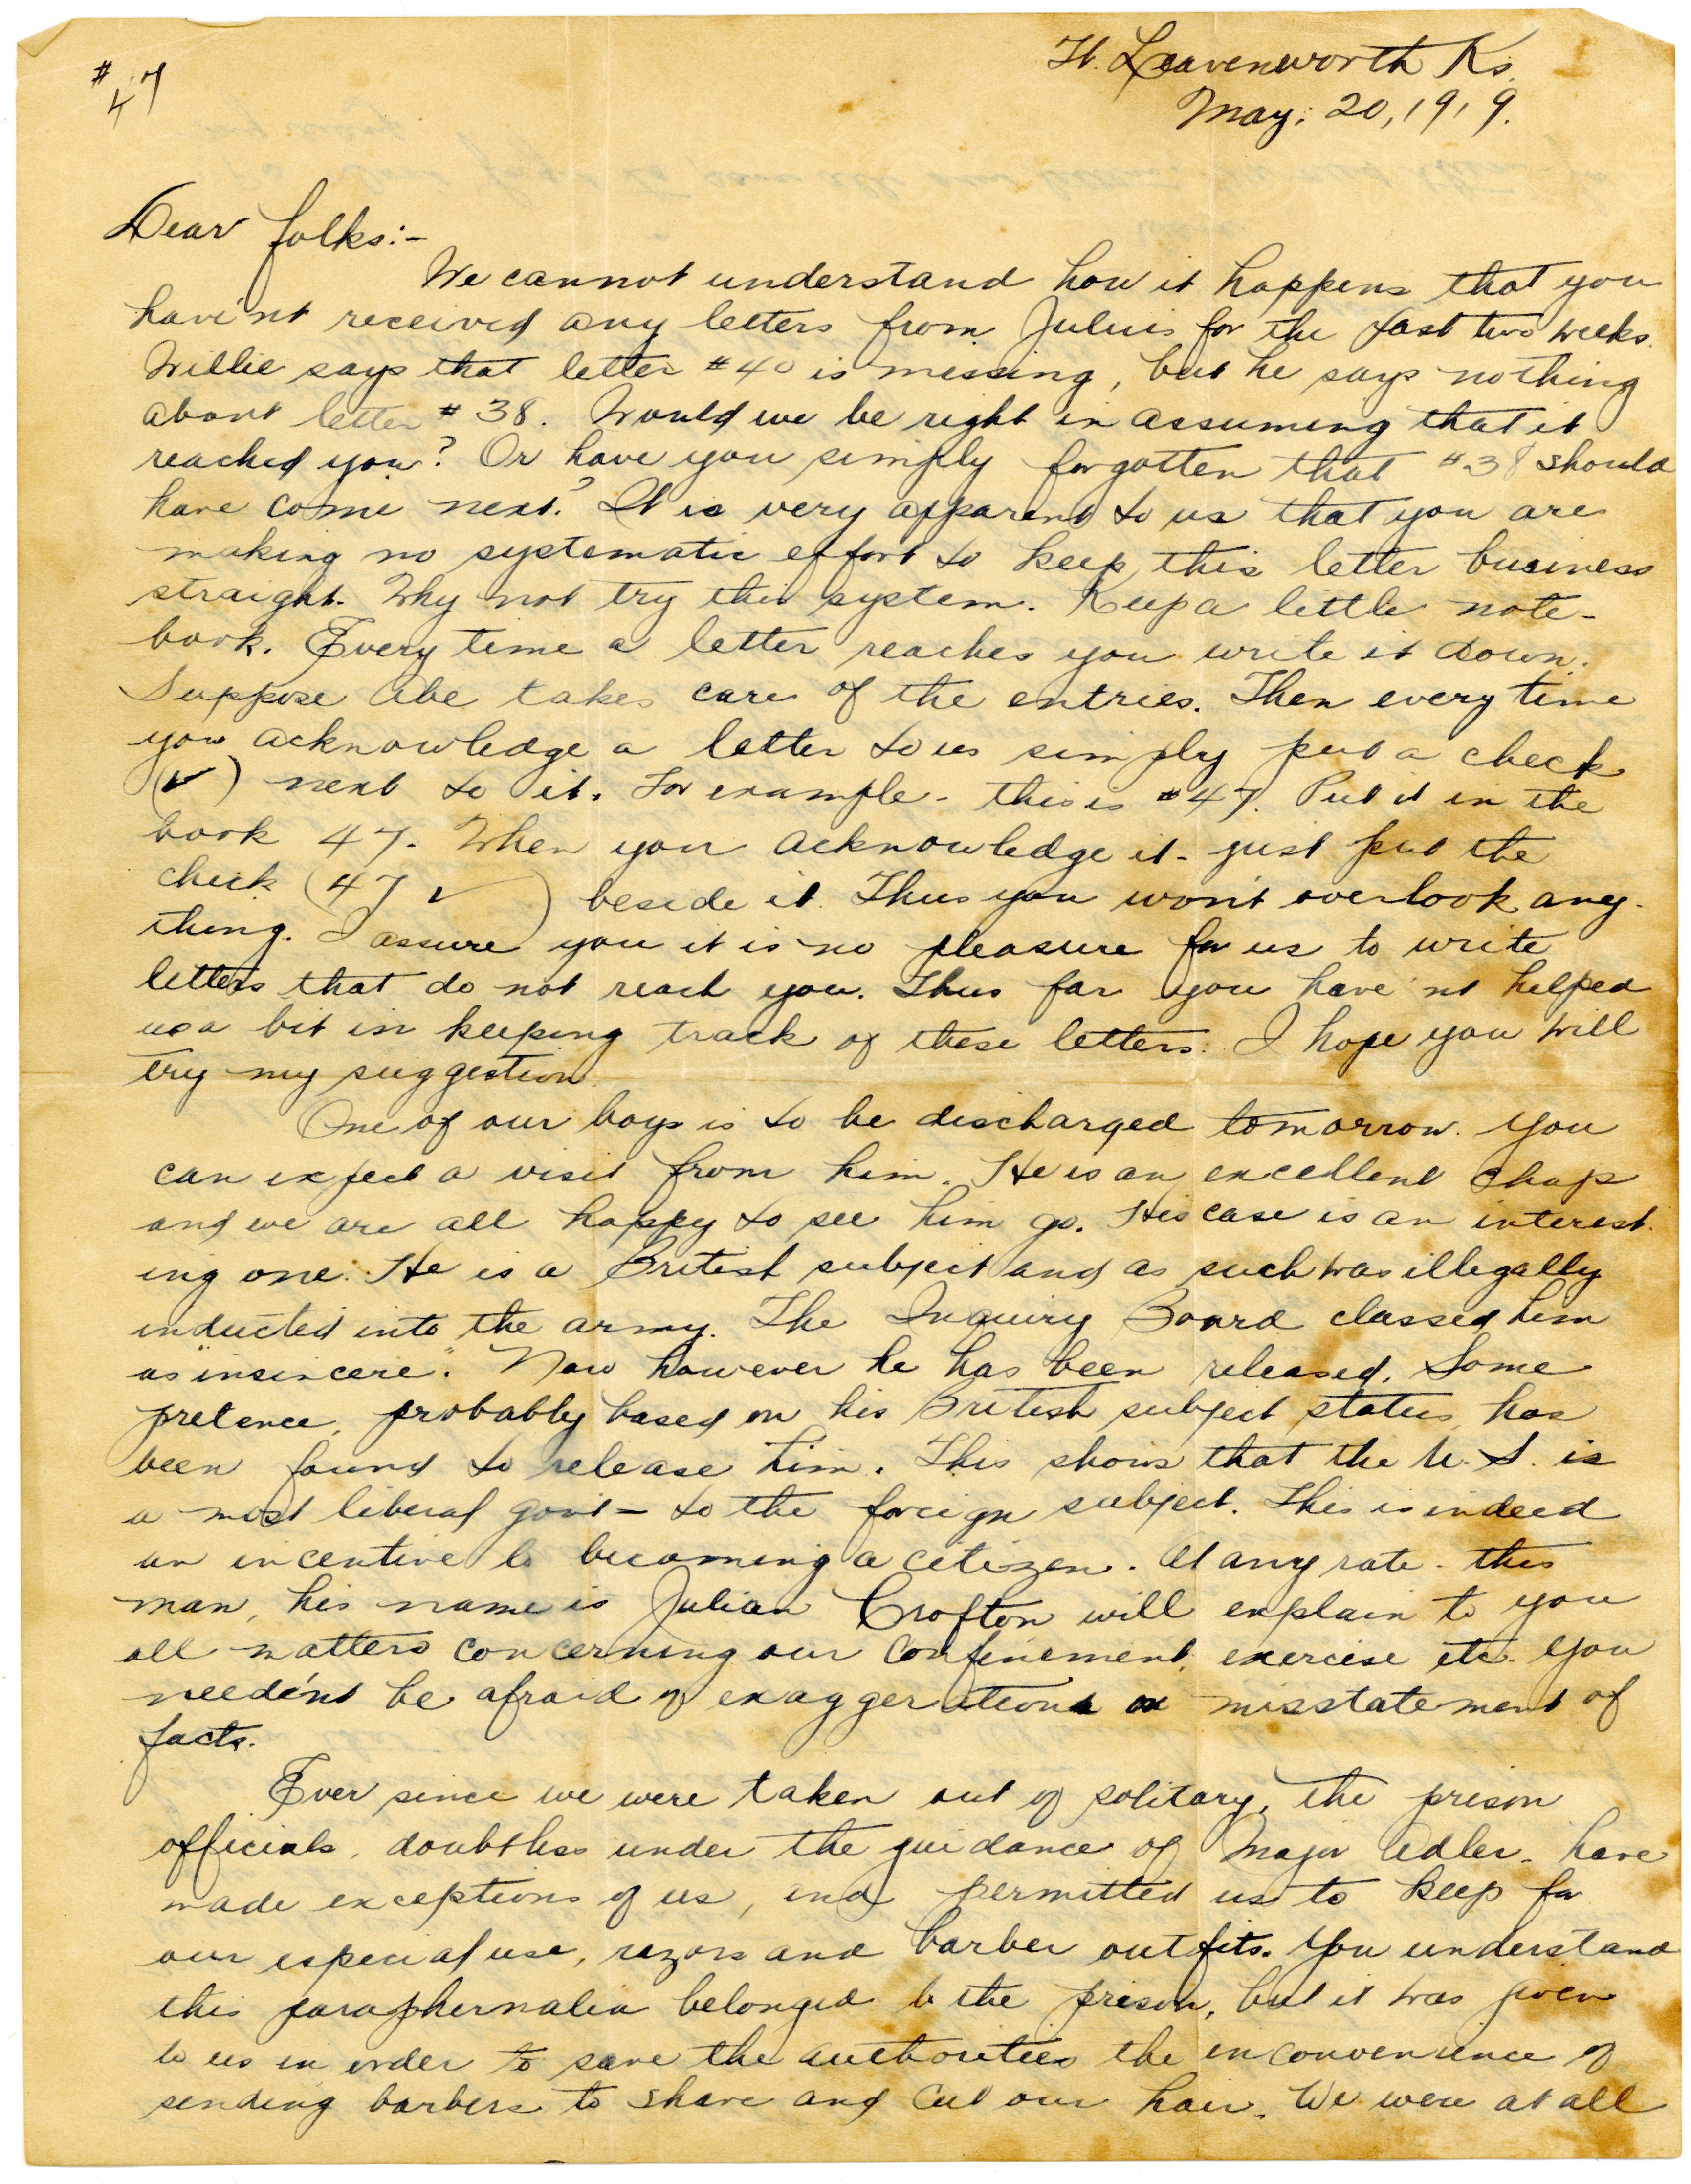 #47
Ft. Leavenworth Ks.
May: 20, 1919.
Dear folks:-
We cannot understand how it happens that you
have'nt received any letters from Julius for the last two weeks.
Willie says that letter #40 is missing, but he says nothing
about letter #38. Would we be right in assuming that it
reached you? Or have you simply forgotten that #38 should
have come next? It is very apparent to us that you are
making no systematic effort to keep this letter business
straight. Why not try this system. Keep a little note-
book. Every time a letter reaches you write it down.
Suppose Abe takes care of the entries. Then every time
you acknowledge a letter to us simply put a check
(✓) next to it. For example - this is #47. Put it in the
book 47. When you acknowledge it - just put the
check (47 ✓) beside it. Thus you won't overlook any-
thing. I assure you it is no pleasure for us to write
letters that do not reach you. Thus far you have'nt helped
us a bit in keeping track of these letters. I hope you will
try my suggestion.
One of our boys is to be discharged tomorrow. You
can expect a visit from him. He is an excellent chap
and we are all happy to see him go. His case is an interest-
ing one. He is a British subject and as such was illegally
inducted into the army. The Inquiry Board classed him
as "insincere". Now however he has been released. Some
pretence, probably based on his British subject status has
been found to release him. This shows that the U.S. is
a most liberal govt - to the foreign subject. This is indeed
an incentive to becoming a citizen. At any rate - this
man, his name is Julian Crofton will explain to you
all matters concerning our confinement, exercise etc. You
needen't be afraid of exaggerations or misstatement of
facts.
Ever since we were taken out of solitary, the prison
officials, doubtless under the guidance of Major Adler - have
made exceptions of us, and permitted us to keep for
our especial use, razors and barber outfits. You understand
this paraphernalia belonged to the prison, but it was given
to us in order to save the authorities the inconvenience of
sending barbers to shave and cut our hair. We were at all